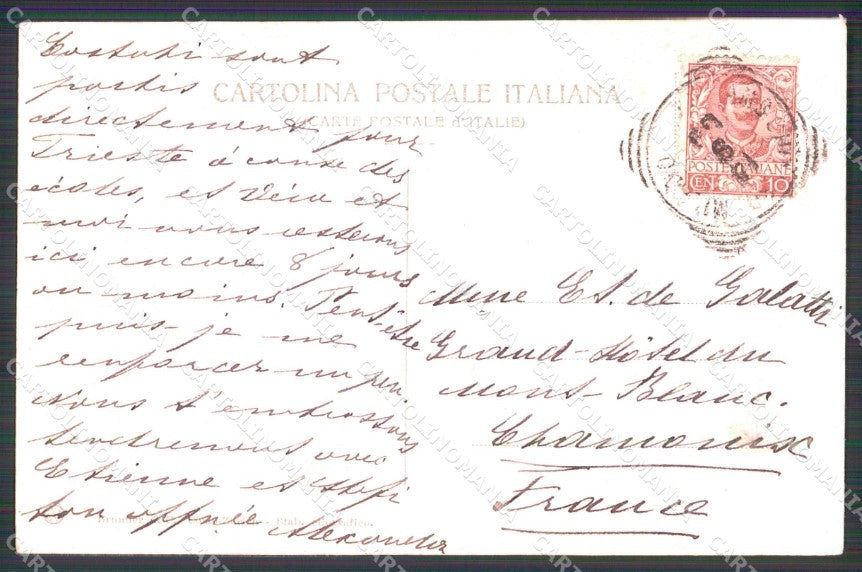 CARTOLINA POSTALE ITALIANA
(CARTE POSTALE D'ITALIE)
sont
partis
directement pour
Trieste à cause des
écoles, et Véra et
moi nous resterons
ici encore 8 jours
au moins. Peut-être
puis-je me
renforcer un peu.
Nous t'embrassons
tendrement avec
Etienne et
ton
Mme Et. de Galatti
Grand-Hôtel du
Mont-Blanc.
Chamonix
France
POSTE ITALIANE
CENT 10
MILANO
Brunner
Stab.
CARTOLINOMANIA